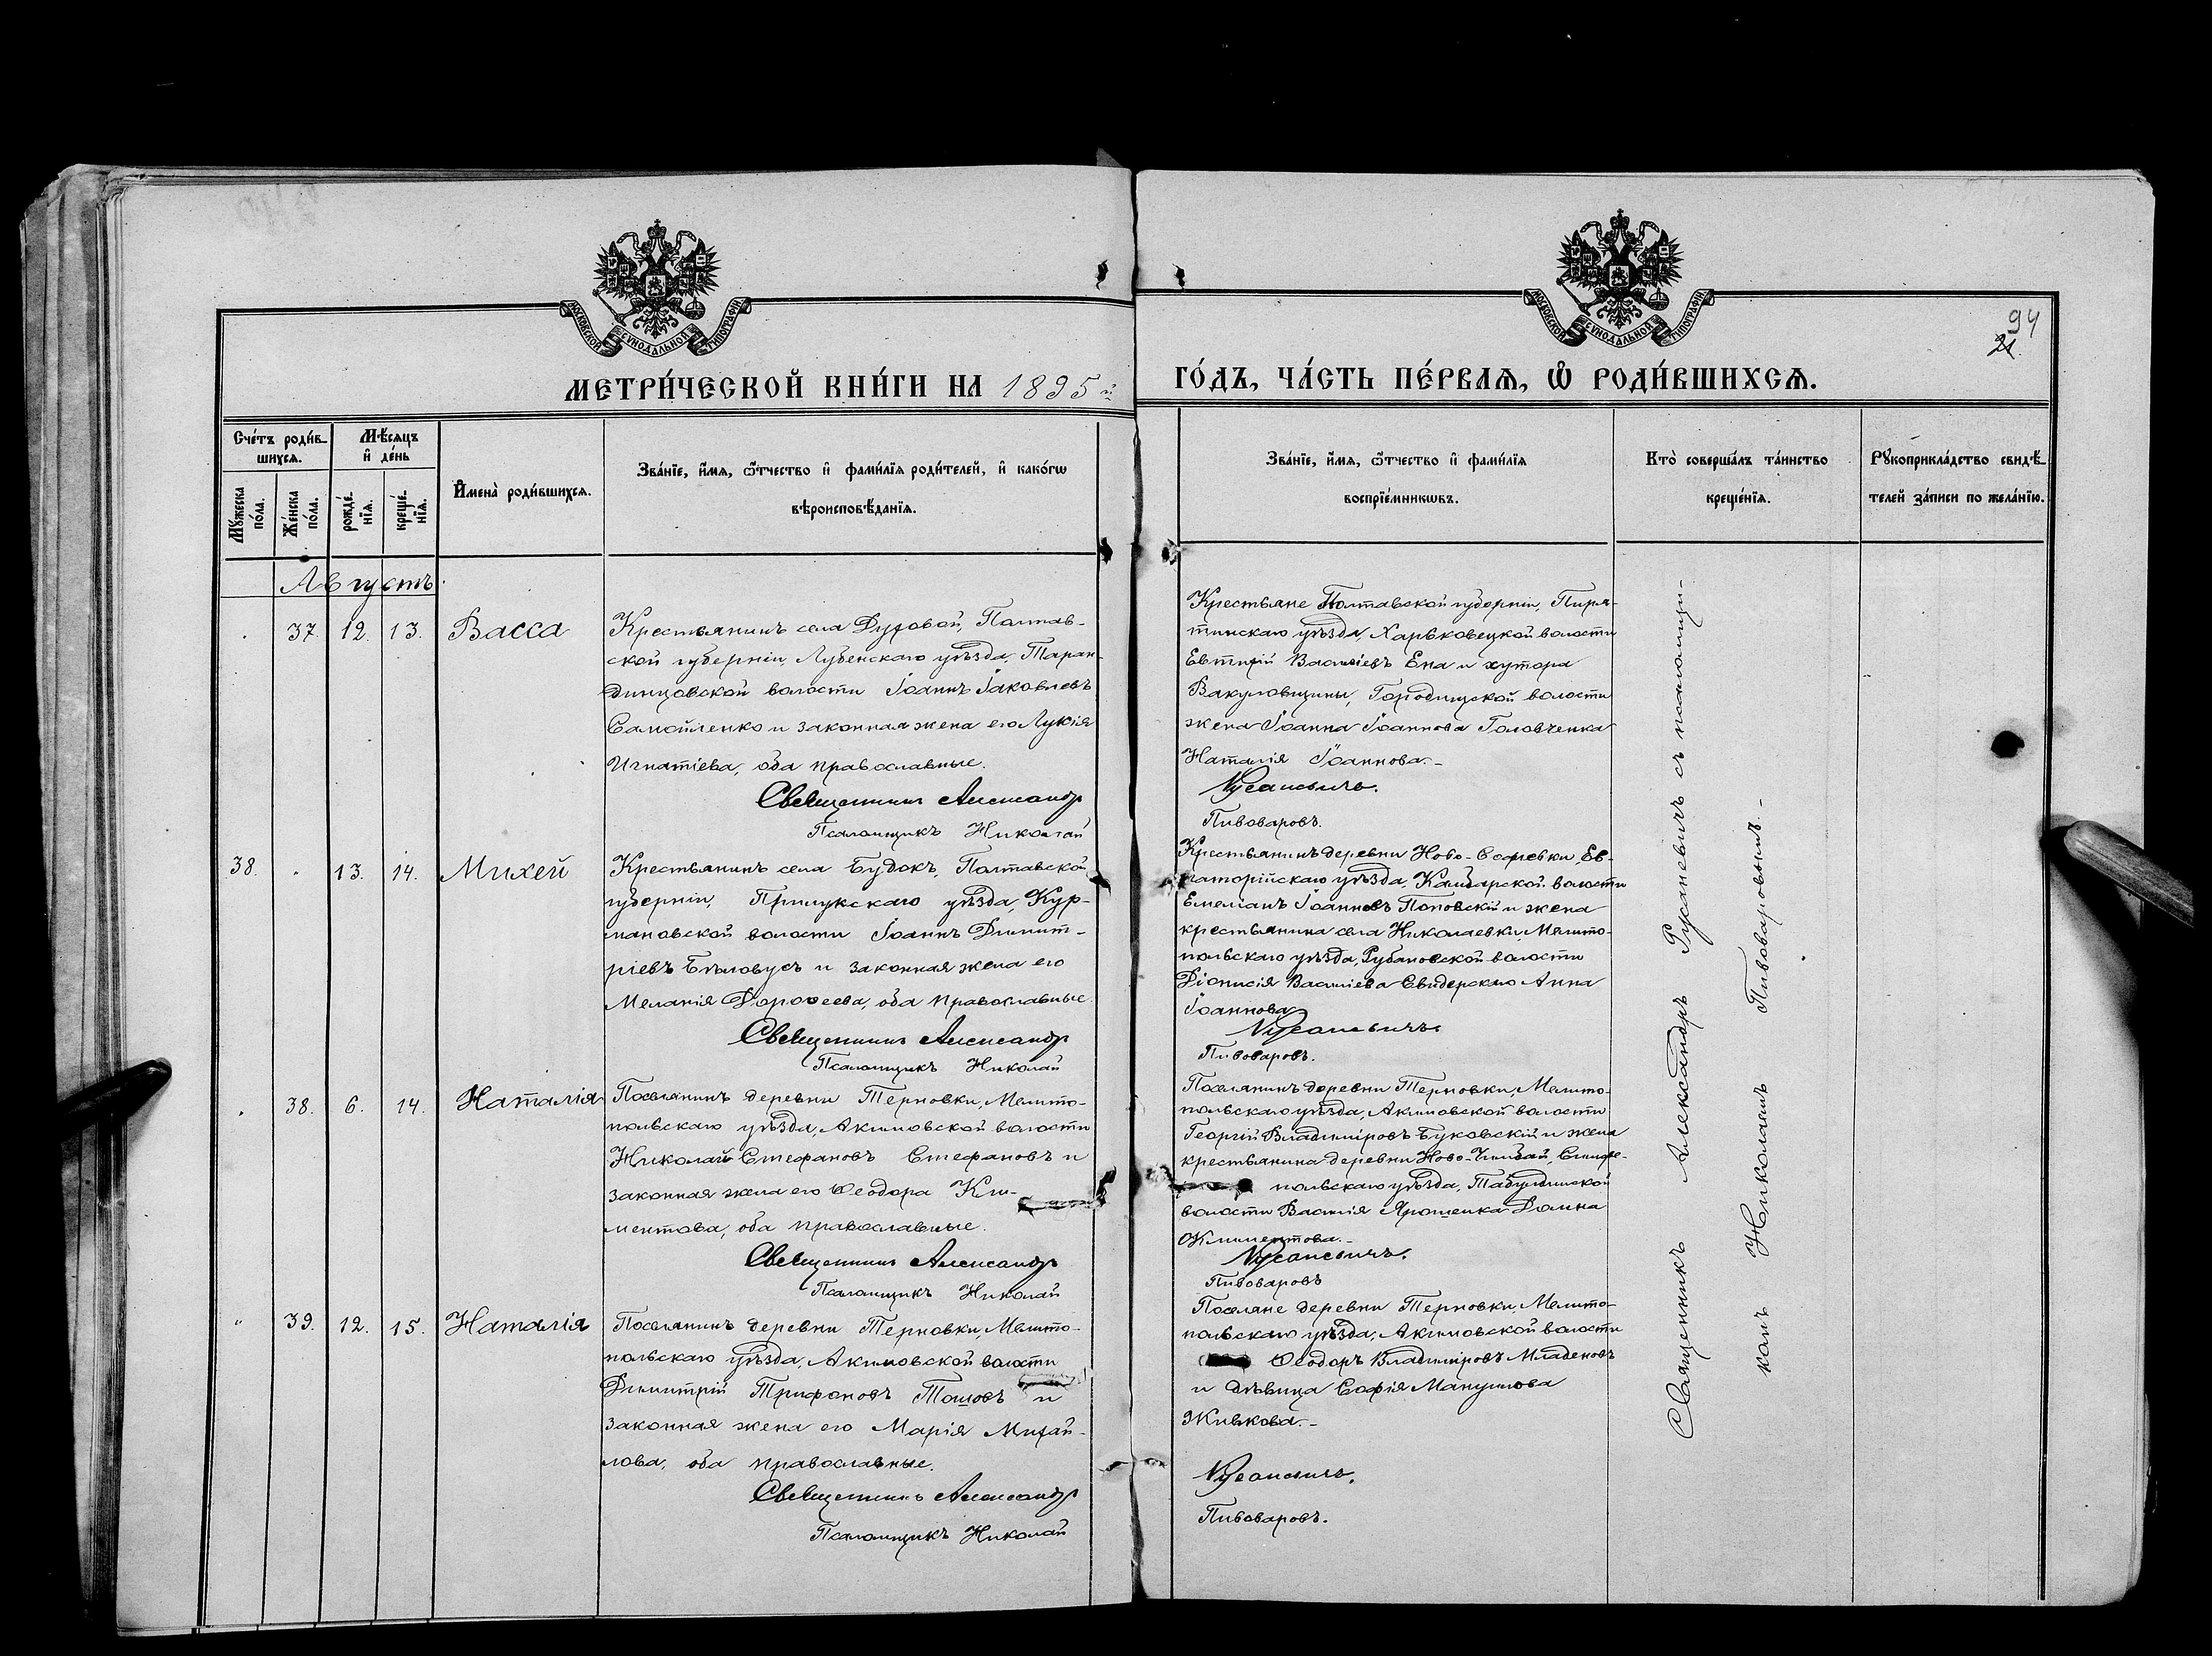 МОСКОВСКОЙ СѴНОДАЛЬНОЙ ТИПОГРАФІИ
МОСКОВСКОЙ СѴНОДАЛЬНОЙ ТИПОГРАФІИ
94
21.
МЕТРИ́ЧЕСКОЙ КНИ́ГИ НА 1895 й
ГО́ДЪ, ЧА́СТЬ ПЕ́РВАѦ, Ѽ РОДИ́ВШИХСѦ.
Сче́тъ роди́в-
шихсѧ.
Мꙋжеска по́ла.
Же́нска по́ла.
Мѣ́сѧцъ
и҆ де́нь
рожде́-
нїѧ.
креще́-
нїѧ.
И҆мена̀ роди́вшихсѧ.
Зва́нїе, и҆́мѧ, ѻ҆́тчество и҆ фами́лїѧ роди́телей, и҆ како́гѡ
вѣроисповѣ́данїѧ.
Зва́нїе, и҆́мѧ, ѻ҆́тчество и҆ фами́лїѧ
воспрїе́мникѡвъ.
Кто̀ соверша́лъ та́инство
креще́нїѧ.
Рꙋкоприкла́дство свидѣ́-
телей за́писи по жела́нїю.
Августъ.
37. 12. 13. Васса
Крестьянинъ села Духовой, Полтав-
ской губерніи, Лубенскаго уѣзда, Таран-
динцовской волости Іоаннъ Іаковлевъ
Самойленко и законная жена его Лукія
Игнатіева, оба православные.
Священникъ Александр
Псаломщикъ Николай
Крестьяне Полтавской губерніи, Пиря-
тинскаго уѣзда, Харьковецкой волости
Евтихій Василіевъ Ена и хутора
Вакуловщины, Городищской волости
жена Іоанна Іоаннова Головченка
Наталія Іоаннова.-
Русаневичъ.
Пивоваровъ.
38. 13. 14. Михей
Крестьянинъ села Будокъ, Полтавской
губерніи, Прилукскаго уѣзда, Кур-
мановской волости Іоаннъ Димит-
ріевъ Бѣловусъ и законная жена его
Меланія Дороѳеева, оба православные.
Священникъ Александр
Псаломщикъ Николай
Крестьянинъ деревни Ново-Софіевки, Ев-
паторійскаго уѣзда, Камбарской волости
Емеліанъ Іоанновъ Поповскій и жена
крестьянина села Николаевки, Мелито-
польскаго уѣзда, Рубановской волости
Діонисія Василіева Свидерскаго Анна
Іоаннова
Русаневичъ.
Пивоваровъ.
38. 6. 14. Наталія
Поселянинъ деревни Терновки, Мелито-
польскаго уѣзда, Акимовской волости
Николай Стефановъ Стефановъ и
законная жена его Ѳеодора Кли-
ментова, оба православные.
Священникъ Александр
Псаломщикъ Николай
Поселянинъ деревни Терновки, Мелито-
польскаго уѣзда, Акимовской волости
Георгій Владиміровъ Буковскій и жена
крестьянина деревни Ново- Симфе-
польскаго уѣзда, Табулдинской
волости Василія Ярошенка Домна
Климентова.-
Русаневичъ.
Пивоваровъ
" 39. 12. 15. Наталія
Поселянинъ деревни Терновки, Мелито-
польскаго уѣзда, Акимовской волости
Димитрій Трифоновъ Тошовъ и
законная жена его Марія Михай-
лова, оба православные.
Священникъ Александр
Псаломщикъ Николай
Поселяне деревни Терновки, Мелито-
польскаго уѣзда, Акимовской волости
Ѳеодоръ Владиміровъ Младеновъ
и дѣвица Софія Мануилова
Живкова.-
Русаневичъ.
Пивоваровъ.
Священникъ Александръ Русаневичъ съ псаломщи-
комъ Николаемъ Пивоваровымъ.-